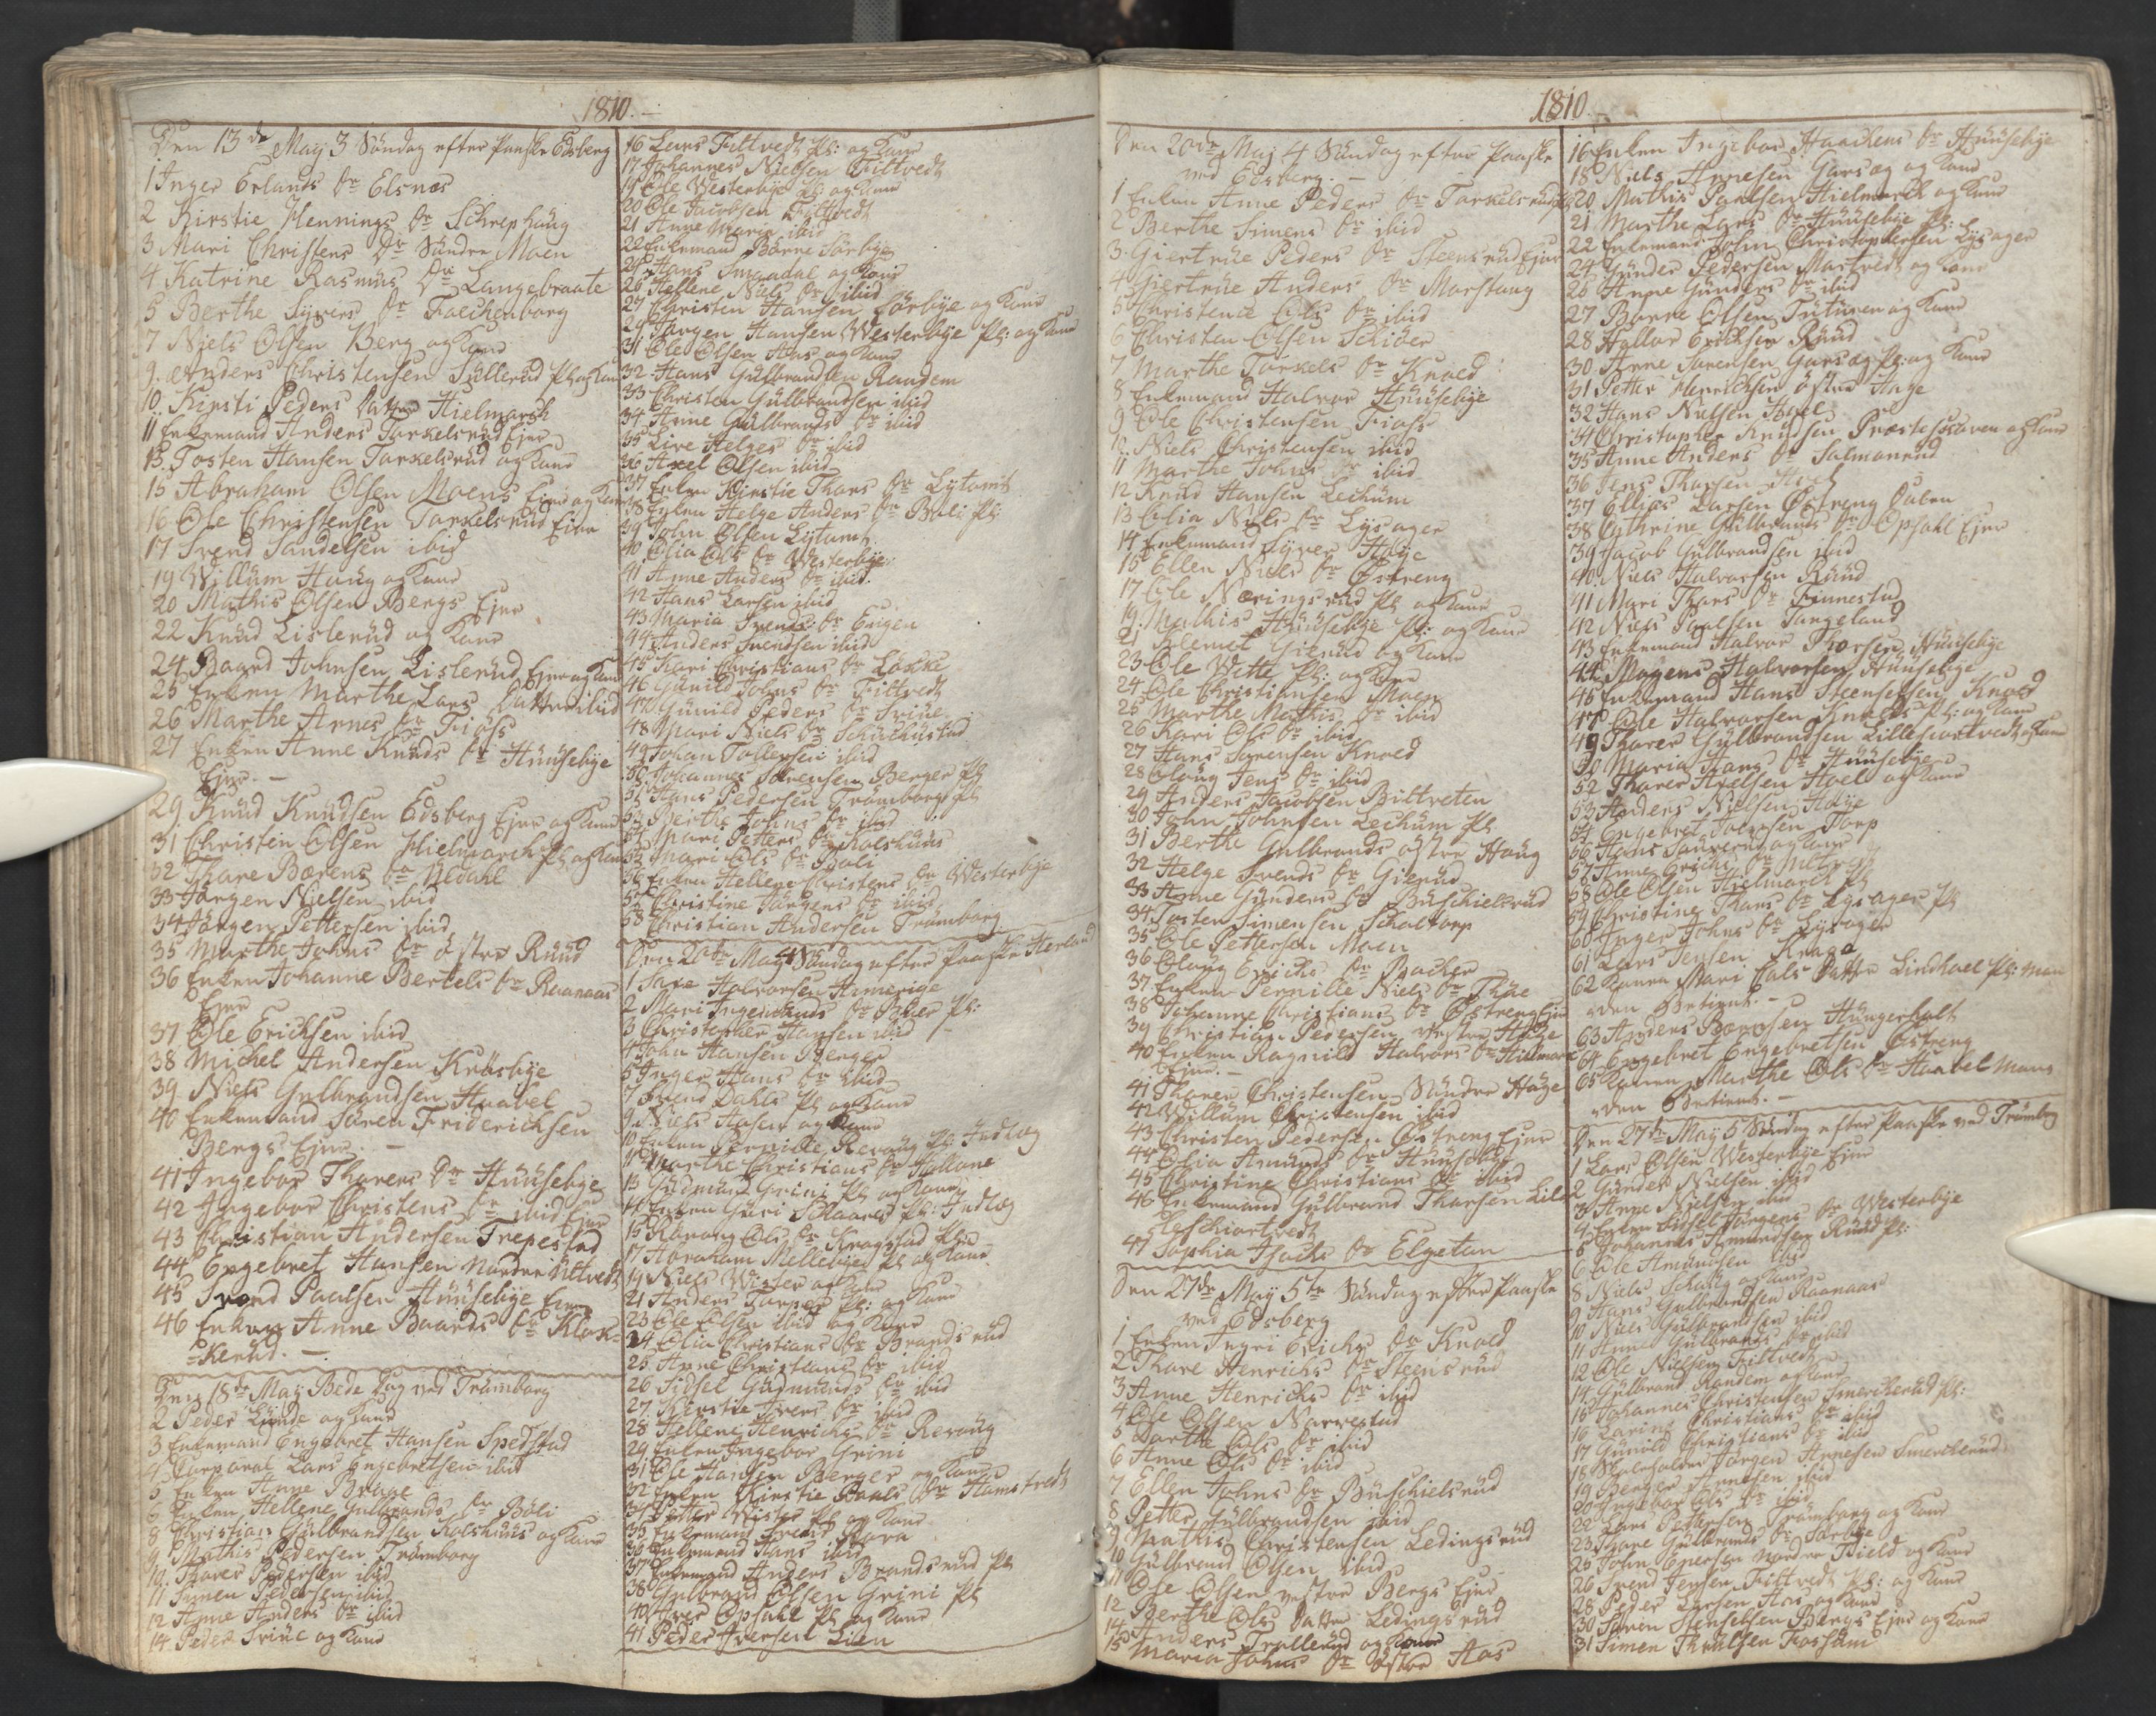 1810.
Den 13de Maÿ 3 Söndag efter Paaske Edsberg
1 Inger Erlands Dr Elsnæs
2 Kirstie Hennings Dr Schrephaug
3 Mari Christens Dr Söndre Moen
4 Katrine Rasmus Dr Langebraate
5 Berthe Syvers Dr Faechenborg
7 Niels Olsen Berg og Kone
9. Anders Christensen Süllerüd Pl. og Kone
10. Kirsti Peders Datter Hielmarch
11 Enkemand Anders Torkelsrüd Ejer
13. Tosten Hansen Torkelsrüd og Kone
15 Abraham Olsen Moens Ejer og Kone
16 Ole Christensen Torkelsrüd Eier
17 Svend Sandelsen ibid
19 Willüm Haug og Kone
20 Mathis Olsen Bergs Ejer
22 Knüd Lislerüd og Kone
24. Baard Johnsen Lislerüd Ejer og Kone
25 Enken Marthe Lars Datter ibid
26 Marthe Arnes Dr Fiöss
27 Enken Anne Knuds Dr Hüüsebÿe
Ejer. –
29 Knud Knudsen Edsberg Ejer og Kone
31 Christen Olsen Hielmarch Pl. og Kone
32 Thare Børens Dr Nedahl
33 Jörgen Nielsen ibid
34 Jörgen Pettersen ibid
35 Marthe Johns Dr östre Rüüd
36 Enken Johanne Bertels Dr Raanaas
Ejer
37 Ole Erichsen ibid
38 Michel Andersen Krosbÿe
39 Niels Gulbrandsen Haabel
40 Enkemand Sören Friderichsen
Bergs Ejer. –
41 Ingebor Thorers Dr Hüüsebÿe
42 Ingebor Christens Dr ibid Ejer
43 Christian Andersen Trepestad
44 Engebret Hansen nordre Ültvedt
45 Svend Paalsen Hüüsebÿe Ejer
46 Enken Anne Baards Dr Klok-
=kerüd. –
Den 18de Maÿ Bede Dag ved Trömborg
2 Peder Lünde og Kone
3 Enkemand Engebret Hansen Spedstad
4 Corporal Lars Engebretsen ibid
5 Enken Anne Brage
6 Enken Hellene Gulbrands Dr Böli
8 Christian Gülbrandsen Kolshuus og Kone
9. Mathis Pedersen Trömborg
10. Thorer Pedersen ibid
11 Simen Pedersen ibid
12 Anne Anders Dr ibid
14 Peder Friüe og Kone
16 Lars Fittvedt Pl: og Kone
17 Johannes Nielsen Fittvedt
19 Ole Westerbÿe Pl: og Kone
20 Ole Jacobsen Fittvedt
21 Anne Maria ibid
22 Enkemand Börne Sörbÿe
24 Hans Smaadal og Kone
25 Hellene Niels Dr ibid
27 Christen Hansen Sörbÿe og Kone
29 Jörgen Hansen Westerbÿe Pl: og Kone
31 Ole Olsen Aas og Kone
32 Hans Gülbrandsen Raadem
33 Christen Gülbrandsen ibid
34 Anne Gülbrands Dr ibid
35 Live Helges Dr ibid
36 Axel Olsen ibid
37 Enken Kirstie Thors Dr Lÿtomt
38 Enken Helge Anders Dr Böli Pl:
39 John Olsen Lÿtomt
40 Olia Ols Dr Westerbÿe
41 Anne Anders Dr ibid
42 Hans Larsen ibid
43 Maria Svends Dr Engen
44 Anders Svendsen ibid
45 Kari Christians Dr Löcke
46 Günild Johns Dr Fittvedt
47 Günild Peders Dr Friüe
48 Mari Niels Dr Schachüstad
49 Johan Tollefsen ibid
50 Johannes Sörensen Berger Pl
51 Hans Pedersen Trömborg Pl
52 Berthe Johns Dr ibid
54 Mari Petters Dr Kolshuus
55 Mari Ols Dr Boli
56 Enken Hellene Christens Dr Westerbÿe
57 Christine Jörgens Dr ibid
58 Christian Andersen Trömborg
Den 20de Maÿ 4 Söndag efter Paaske Herland
1 Save Halvorsen Armerige
2 Mari Ingemunds Dr Pl:
3 Christopher Hansen ibid
4 John Hansen Berger
5 Inger Hans Dr ibid
7 Svend Dahls Pl og Kone
9 Niels Hasen og Kone
10 Enken Pernille Reraug Pl. Indlæg
11 Marthe Christians Dr Hallane
13 Gudmund Grini Pl og Kone
14 Enken Guri Schaares Pl: Indlæg
15 Ranvog Ols Dr Kragstad
17 Abraham Mellebÿe Pl og Kone
19 Niels Wister og Kone
21 Anders Torper Pl: og Kone
23 Ole Olsen ibid og Kone
24 Olia Christians Dr Brandsrüd
25 Anne Christians Dr ibid
26 Sidsel Gudmunds Dr ibid
27 Kirstie Ivers Dr ibid
28 Hellene Henrichs Dr Reraüg
29 Enken Ingebor Grini
31 Ole Hansen Berger og Kone
32 Enken Kirstie Poules Dr Hamstvedt
34 Petter Wister Pl og Kone
35 Enkemand Svend Skara
36 Enkemand Hans ibid
37 Enkemand Anders Brandsrüd Pl
38 Gulbrand Olsen Grini Pl
40 Iver Opsahl Pl og Kone
41 Peder Iversen Lien
1810.
Den 20de Maj 4 Söndag efter Paaske
ved Edsberg. –
1 Enken Anne Peders Dr Torkelsrüd
2 Berthe Simens Dr ibid
3 Giertrüe Peders Dr Steensrüd Ejer
4 Giertrüe Anders Dr Morstang
5 Christence Ols Dr ibid
6 Christen Olsen Schiöer
7 Marthe Torkels Dr Knoed
8 Enkemand Halvor Hüüsebÿe
9 Ole Christensen Fioss
10. Niels Christensen ibid
11 Marthe Johns Dr ibid
12 Knüd Hansen Lechüm
13 Olia Niels Dr Lÿsager
14 Enkemand Syver Høÿe
15 Ellen Niels Dr Östreng
17 Ole Næringsrüd Pl og Kone
19. Mathis Hüüsebÿe Pl: og Kone
21 Klemet Gierüd og Kone
23 Ole Witte Pl: og Kone
24 Ole Christiansen Moen
25 Marthe Mathis Dr ibid
26 Kari Ols Dr ibid
27 Hans Sörensen Knoed
28 Olaüg Jens Dr ibid
29 Anders Jacobsen Bittveten
30 John Johnsen Lechüm Pl
31 Berthe Gulbrands östre Haüg
32 Helge Svends Dr Gierüd
33 Anne Günders Dr Büschielsrüd
34 Tosten Simensen Schaltorp
35 Ole Pettersen Moen
36 Olaüg Erichs Dr Backer
37 Enken Pernille Niels Dr Thüe
38 Johanne Christians Dr Östreng Ejer
39 Christian Pedersen Vestre Høÿe
40 Enken Ragnild Halvors Dr Hielmark
Ejer. –
41 Thorer Christensen Söndre Høÿe
42 Willüm Christensen ibid
43 Christen Pedersen Östreng Ejer
44 Olia Amünds Dr Hüüsebÿe
45 Christine Christians Dr ibid
46 Enkemand Gülbrand Thorsen Lile
Eschiortvedt
47 Sophia Isachs Dr Elgetan
Den 27de Maÿ 5te Söndag efter Paaske
ved Edsberg
1 Enken Ingri Erichs Dr Knoed
2 Thore Henrichs Dr Steensrüd
3 Anne Henrichs Dr ibid
4 Ole Olsen Narvestad
5 Dorthe Ols Dr ibid
6 Anne Ols Dr ibid
7 Ellen Johns Dr Büschielsrüd
8 Petter Gülbrandsen ibid
9 Mathis Christensen Ledingsrüd
10 Gülbrand Olsen ibid
11 Ole Olsen vestre Bergs Ejer
12 Berthe Ols Datter Ledingsrüd
14 Anders Trollerüd og Kone
15 Maren Johns Dr østre Aas
1810.
16 Enken Ingebor Haachens Dr Hüüsebÿe
18 Niels Arnesen Garsæg og Kone
20. Mathis Paalsen Hielmarch og Kone
21 Marthe Lars Dr Hüüsebÿe Pl:
22 Enkemand John Christophersen Lÿsager
24 Günder Pedersen Mastvedt og Kone
26 Anne Günders Dr ibid
27 Börre Olsen Tütüren og Kone
28 Hallor Erichsen Rüüd
30. Arne Sörensen Garsæg Pl: og Kone
31 Petter Henrichsen østre Høÿe
32 Hans Nielsen Hoel
34 Christopher Knudsen Præstefossaven og Kone
35 Anne Anders Dr Salmonrüd
36 Jens Thorsen
37 Ellias Larsen Østreng
38 Cathrine Gülbrands Dr Opsahl Ejer
39 Jacob Gulbrandsen ibid
40. Niels Halvorsen Rüüd
41 Mari Thors Dr Finnestad
42 Niels Paalsen Tangeland
43 Enkemand Halvor Thorsen Hüüsebÿe
44 Mogens Halvorsen Hüüsebÿe
45 Enkemand Hans Steensen Knoed
47 Ole Halvorsen Knoeds Pl: og Kone
49 Thorer Gülbrandsen Lilleschortvedt og Kone
50 Maria Hans Dr Hüüsebÿe
52 Thorer Axelsen Hoel og Kone
53 Anders Nielsen Høÿe
54 Engebret Torp
56 Hans og Kone
57 Anne Erichs Dr
58 Ole Olsen Hielmarch Pl
59 Christine Thors Dr Lÿsager Pl
60 Inger Johns Dr Lÿsager
61 Lars Jensen Kraga
62 Konen Mari Ols Datter Lindhoel Pl: Man
den Betient. –
63 Anders Börresen Hüngerholt
64 Engebret Engebretsen Östreng
65 Konen Marthe Ols Dr Haabel Mans
den Betient. –
Den 27de Maÿ 5 Söndag efter Paaske ved Trömborg
1 Lars Olsen Westerbÿe Ejer
2 Günder Nielsen ibid
3 Anne Nielsen ibid
4 Enken Sidsel Jörgens Dr Westerbÿe
5 Johannes Amundsen Rüüd Pl:
6 Ole Amundsen ibid
8 Niels Schaüg og Kone
9 Hans Gulbrandsen Raanaas
10 Niels Gülbrandsen ibid
11 Anne Gülbrands Dr ibid
12 Ole Nielsen Fittvedt
14 Gülbrand Randem og Kone
15 Johannes Christensen Smercherüd Pl:
16 Karine Christians Dr ibid
17 Günild Christians Dr ibid
18 Jörgen Arnesen Smercherüd
19 Berger Arnesen ibid
20 Ingebor Ols Dr ibid
22 Lars Pettersen Trömborg og Kone
23 Thore Gülbrands Dr Sörbÿe
25 John Ejersen nordre Field og Kone
26 Svend Jensen Fittvedt Pl: og Kone
28 Peder Larsen Aas og Kone
30 Sören Stensen Bergs Ejer og Kone
31 Simen Throlsen Fossum